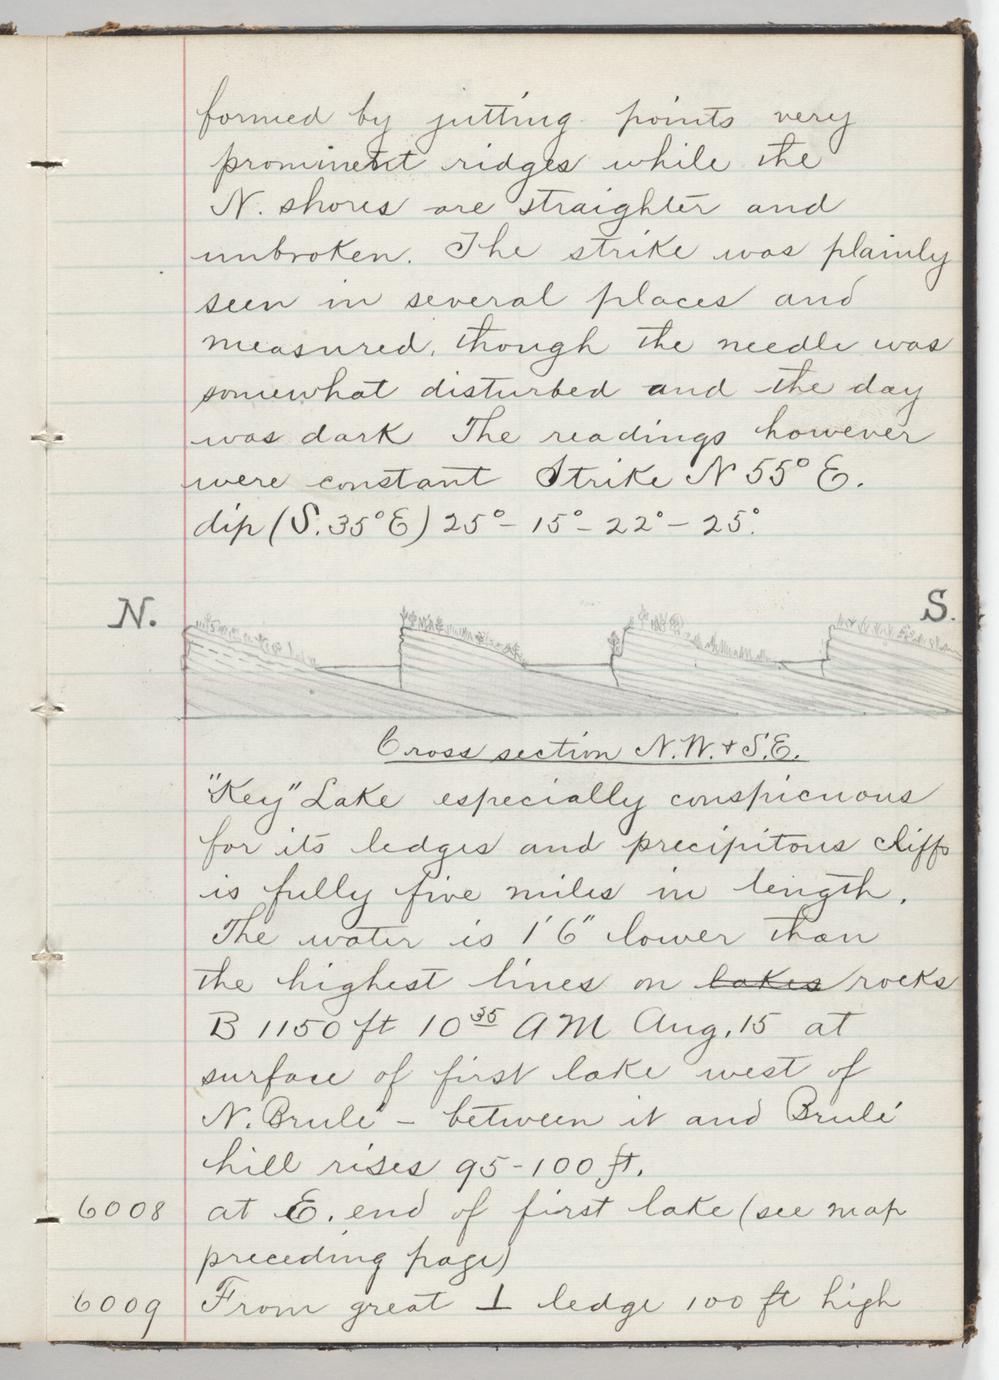 formed by jutting points very
prominent ridges while the
N. shores are straighter and
unbroken. The strike was plainly
seen in several places and
measured, though the needle was
somewhat disturbed and the day
was dark The readings however
were constant Strike N 55° E.
dip (S. 35° E) 25° - 15° - 22° - 25°.
N. S.
Cross section N.W. + S.E.
"Key" Lake especially conspicuous
for its ledges and precipitous cliffs
is fully five miles in length.
The water is 1' 6" lower than
the highest lines on lakes rocks
B 1150 ft 10 35 AM Aug. 15 at
surface of first lake west of
N. Brulé - between it and Brulé
hill rises 95-100 ft.
6008 at E. end of first lake (see map
preceding page)
6009 From great ⊥ ledge 100 ft high